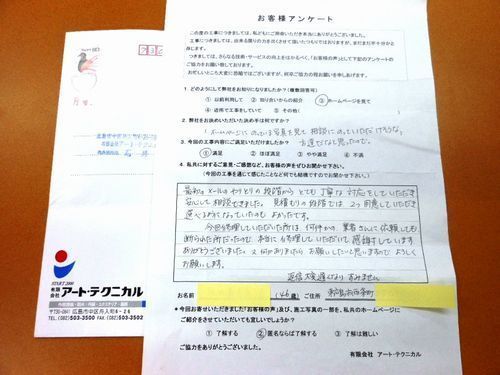 お客様アンケート
この度の工事につきましては、私どもにご用命いただき本当にありがとうございました。
工事につきましては、出来る限りの力を尽くさせて頂いたつもりではおりますが、まだまだ不十分かと
存じます。
つきましては、さらなる技術・サービスの向上をはかるべく、「お客様の声」として下記のアンケートの
ご協力をお願い致しております。
お忙しいところ大変に恐縮ではございますが、何卒ご協力の程お願いを申し上げます。
1. どのようにして弊社をお知りになりましたか?(複数回答可)
①以前利用して ②知り合いからの紹介 ③ホームページを見て
④近所で工事をしていて ⑤その他(
2. 弊社をお決めいただいた決め手は何ですか?
ホームページにのっている写真を見て相談にのっていただけそうな
会社だなと思ったので。
3. 今回の工事内容にご満足いただけましたか?
①満足 ②ほぼ満足 ③やや満足 ④不満
4. 私共に対するご意見・ご感想など、お客様の声をぜひお聞かせ下さい。
(今回の工事を通じて感じたことなど何でも結構ですのでお聞かせ下さい)
最初のメールのやりとりの段階からとても丁寧な対応をしていただき
安心して相談できました。見積もりの段階では2つ用意していただき
選べるようになっていたのもよかったです。
今回修理していただいた所は何件かの業者さんに依頼しても
断られた所だったので、本当に修理していただいて感謝しています
ありがとうございました。又何かありましたらお願いしたいと思いますのでよろしく
お願いします。
返信大変遅くなりすみません
お名前 (46歳) ご住所 東広島市西条町
* 今回お寄せいただきました「お客様の声」及び、施工写真の一部を、私共のホームページに
ご紹介をさせていただいても宜しいでしょうか?
①了解する ②匿名ならば了解する ③難しい
ご協力をありがとうございました。
有限会社 アート・テクニカル
START 2000
有限会社 アート・テクニカル
〒730-0841 広島市中区舟入町6-26
TEL (082)503-3500 FAX (082)503-3502